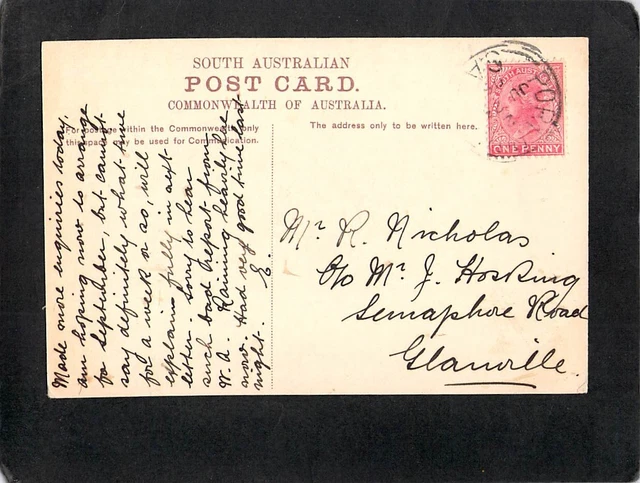 SOUTH AUSTRALIAN
POST CARD.
COMMONWEALTH OF AUSTRALIA.
For postage within the Commonwealth only
this space may be used for Communication.
The address only to be written here.
ONE PENNY
Made more enquiries today,
am hoping now to arrange
for September, but cannot
say definitely what time
for a week or so, will
explain fully in next
letter. Sorry to hear
such bad report from
W.A. Raining heavily here
now. Had very good time last
night. E.
Mr R. Nicholas
C/o Mr J. Hosking
Semaphore Road
Glanville.